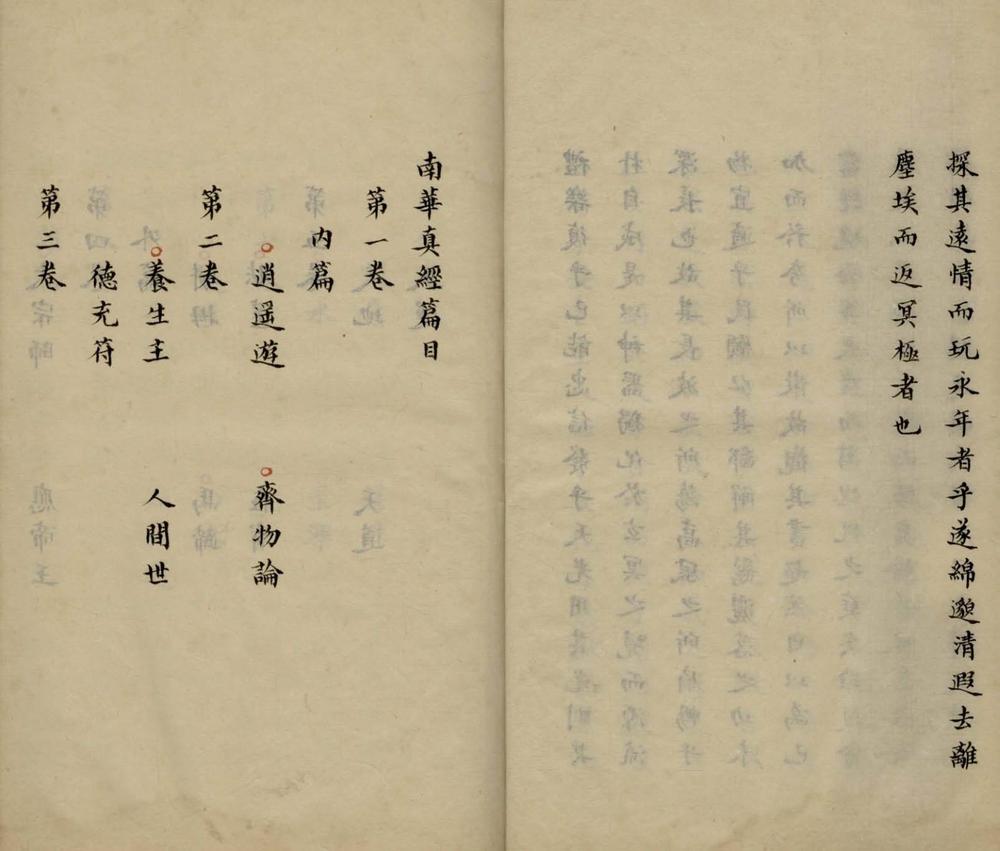 探其遠情而玩永年者乎遂綿邈清遐去離
塵埃而返冥極者也
南華真經篇目
第一卷
内篇
逍遥遊 齊物論
第二卷
養生主 人間世
德充符
第三卷